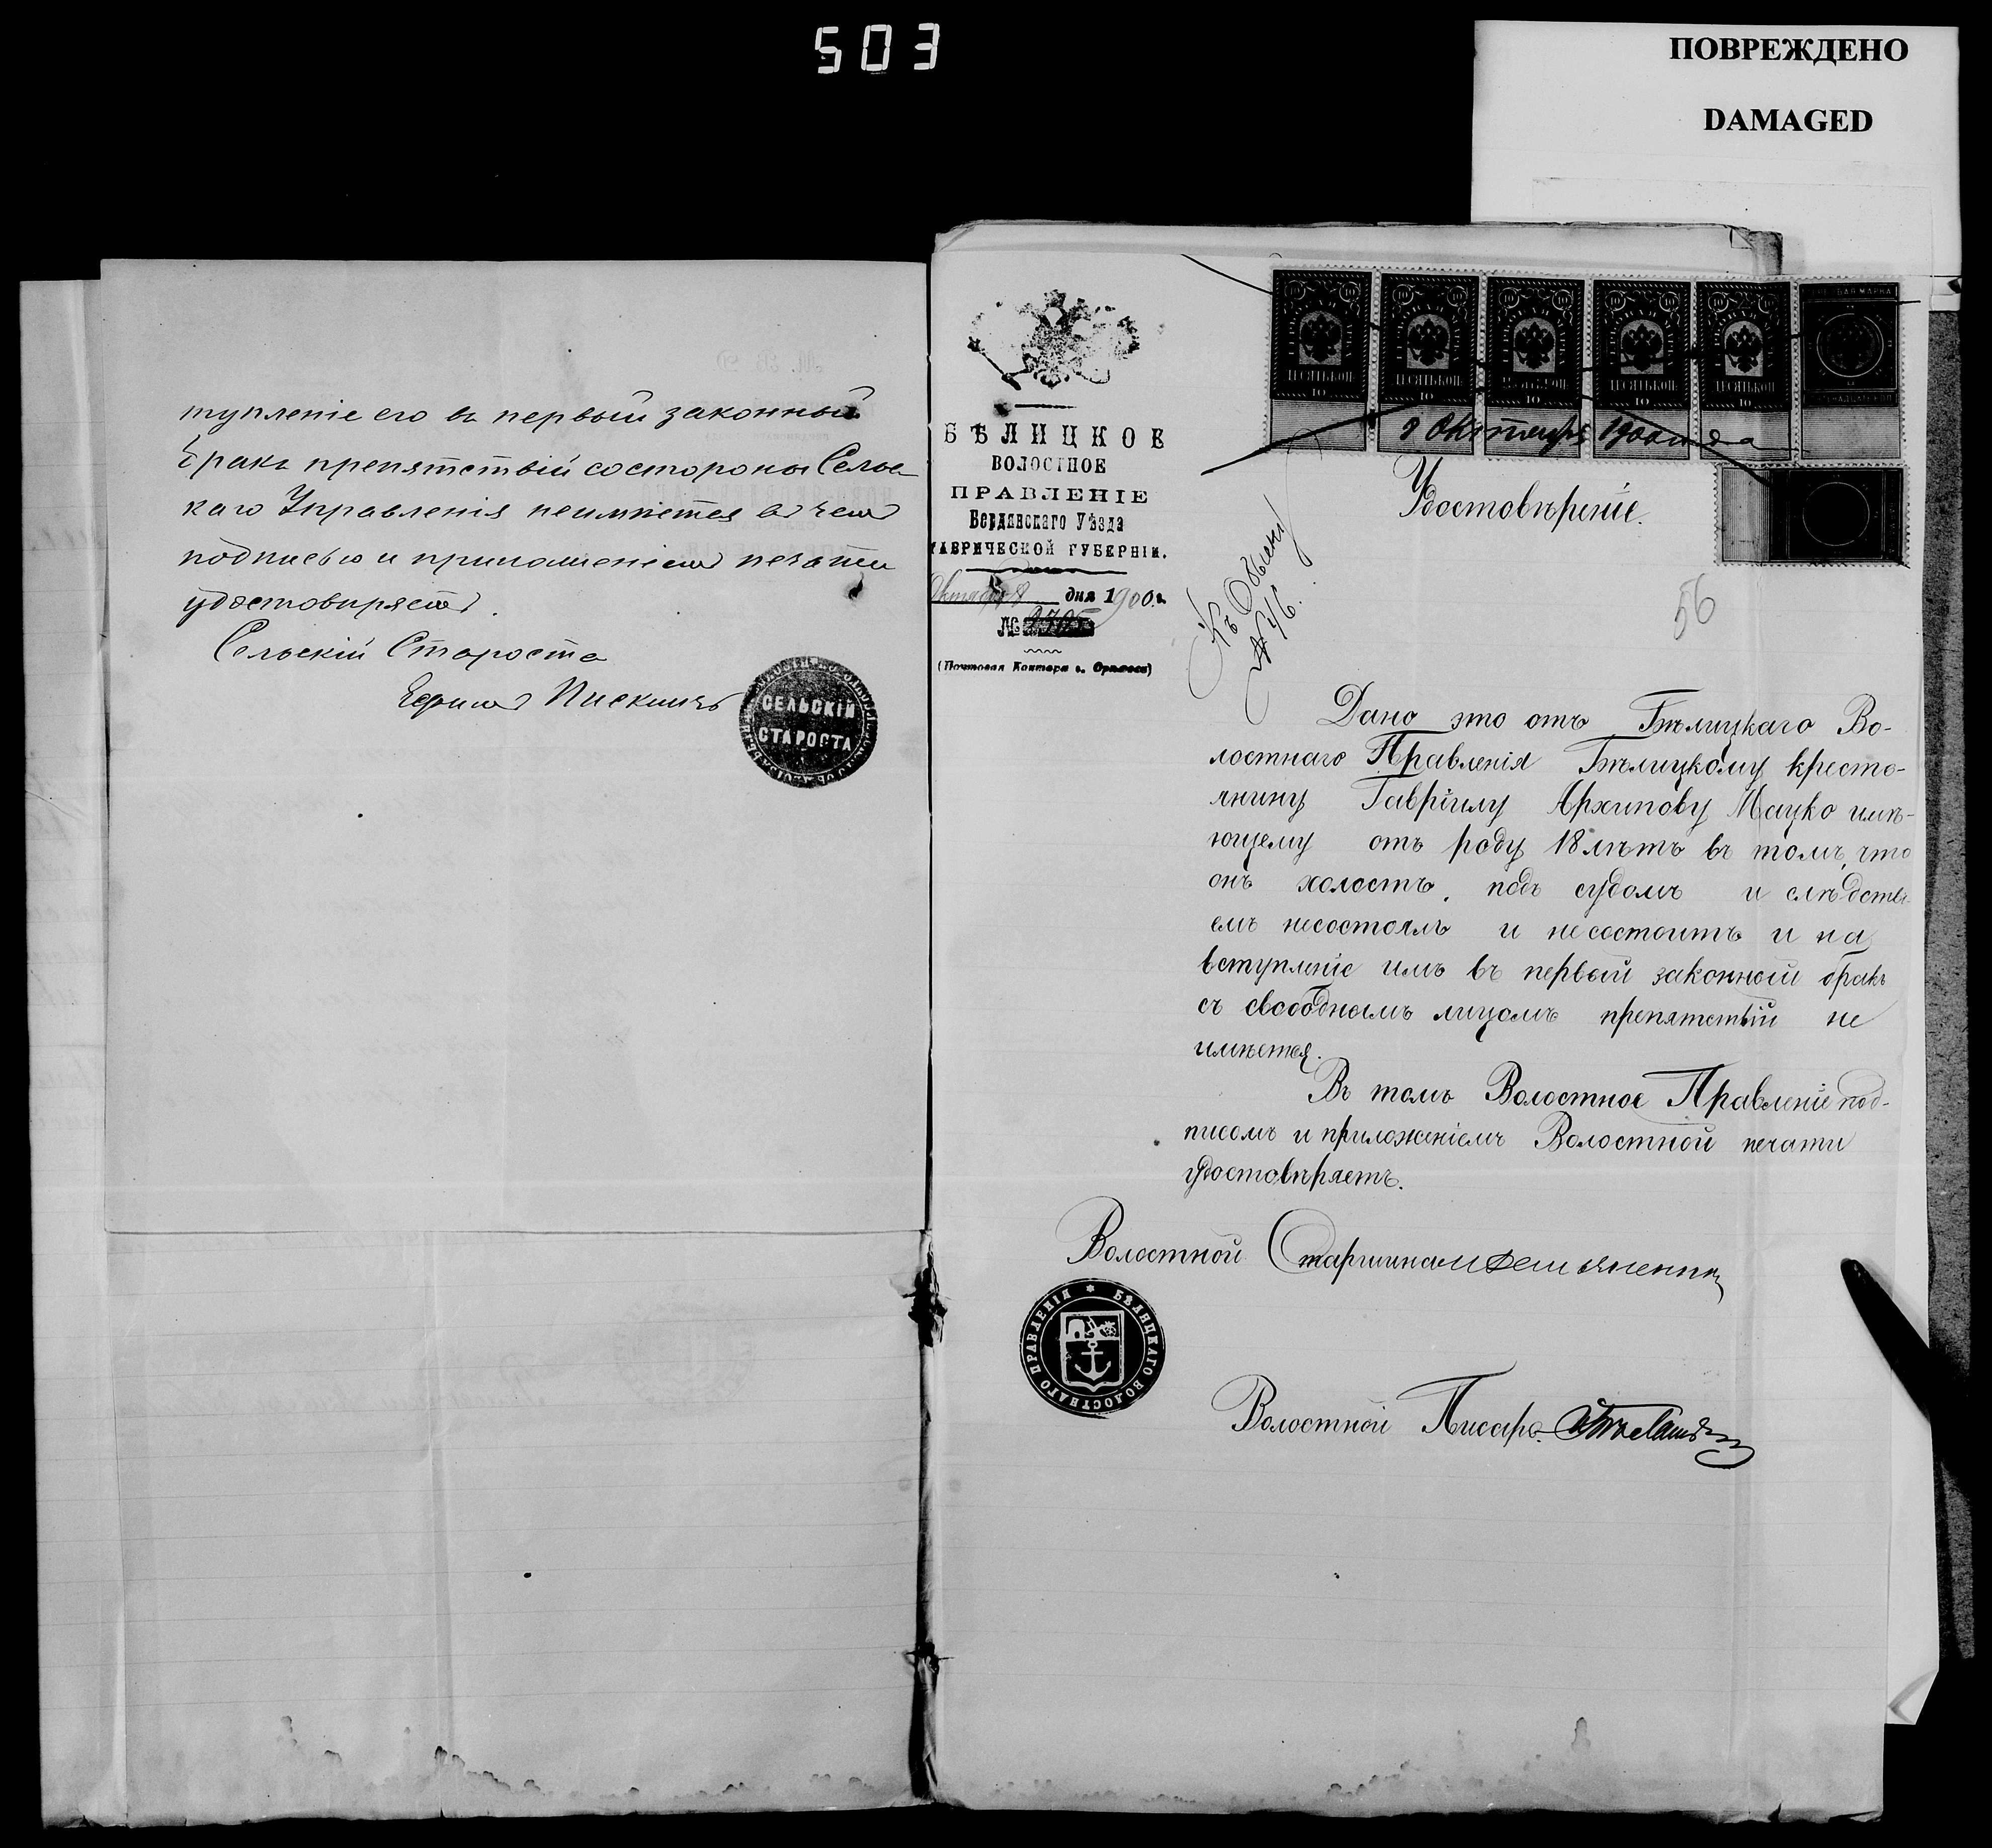 503
ПОВРЕЖДЕНО
DAMAGED
тупленіе его въ первый законный
бракъ препятствій состороны Сельс
каго Управленія неимѣется въ чемъ
подписью и приложеніемъ печати
удостовиряетъ.
Сельскій Староста
Ефимъ Пискинъ
СЕЛЬСКІЙ
СТАРОСТА
БѢЛИЦКОЕ
ВОЛОСТНОЕ
ПРАВЛЕНІЕ
Бердянскаго Уѣзда
ТАВРИЧЕСКОЙ ГУБЕРНІИ.
Октября 8 дня 1900 г.
№ 2705
(Почтовая Контора г. Орѣховъ)
8 Октября 1900 года
Удостовѣреніе.
Къ Обыску
№ 46.
56
Дано это отъ Бѣлицкаго Во-
лостнаго Правленія Бѣлицкому кресть-
янину Гавріилу Архипову Мацко имѣ-
ющему отъ роду 18 лѣтъ въ томъ, что
онъ холостъ, подъ судомъ и слѣдстві-
емъ несостоялъ и не состоитъ и на
вступленіе имъ въ первый законный бракъ
съ свободнымъ лицомъ препятствій не
имѣется.
Въ томъ Волостное Правленіе под-
писомъ и приложеніемъ Волостной печати
удостовѣряетъ.
Волостной Старшина
БѢЛИЦКАГО ВОЛОСТНАГО ПРАВЛЕНІЯ
Волостной Писарь